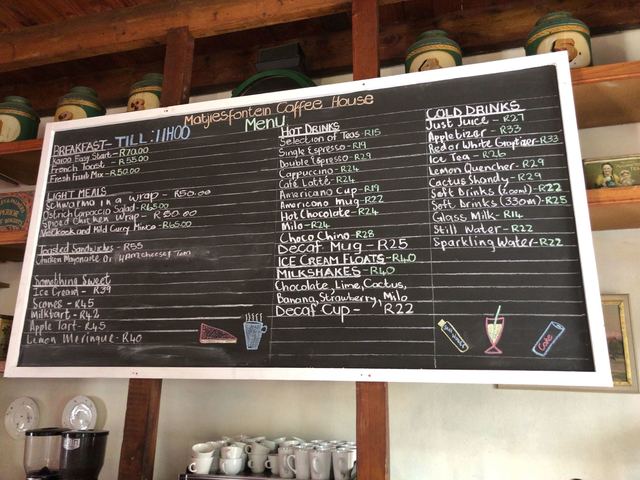 Matjiesfontein Coffee House
Menu
BREAKFAST- TILL: 11H00
Karoo Easy Start - R70.00
French Toast - R55.00
Fresh Fruit Mix - R50.00
LIGHT MEALS
Schwarma in a wrap - R50.00
Ostrich Carpaccio Salad - R65.00
Spiced Chicken Wrap - R50.00
Waterkook and Mild Curry Mince - R65.00
Toasted Sandwiches - R55
Chicken Mayonaite Or Ham Cheese & Tom
Something Sweet
Ice Cream - R39
Scones - R45
Milktart - R42
Apple Tart - R45
Lemon Meringue - R40
HOT DRINKS
Selection of Teas - R15
Single Espresso - R19
Double Espresso - R29
Cappuccino - R24
Café Latte - R24
Americano Cup - R19
Americano mug - R22
Hot Chocolate - R24
Milo - R24
Choco Chino - R28
Decaf Mug - R25
ICE CREAM FLOATS - R40
MILKSHAKES - R40
Chocolate, Lime, Cactus,
Banana, Strawberry, Milo
Decaf Cup - R22
COLD DRINKS
Just Juice - R27
Appletizer - R33
Red or White Grapetizer - R33
Ice Tea - R26
Lemon Quencher - R29
Cactus Shandy - R29
Soft Drinks (200ml) - R22
Soft drinks (330ml) - R25
Glass Milk - R14
Still Water - R22
Sparkling Water - R22
Coke